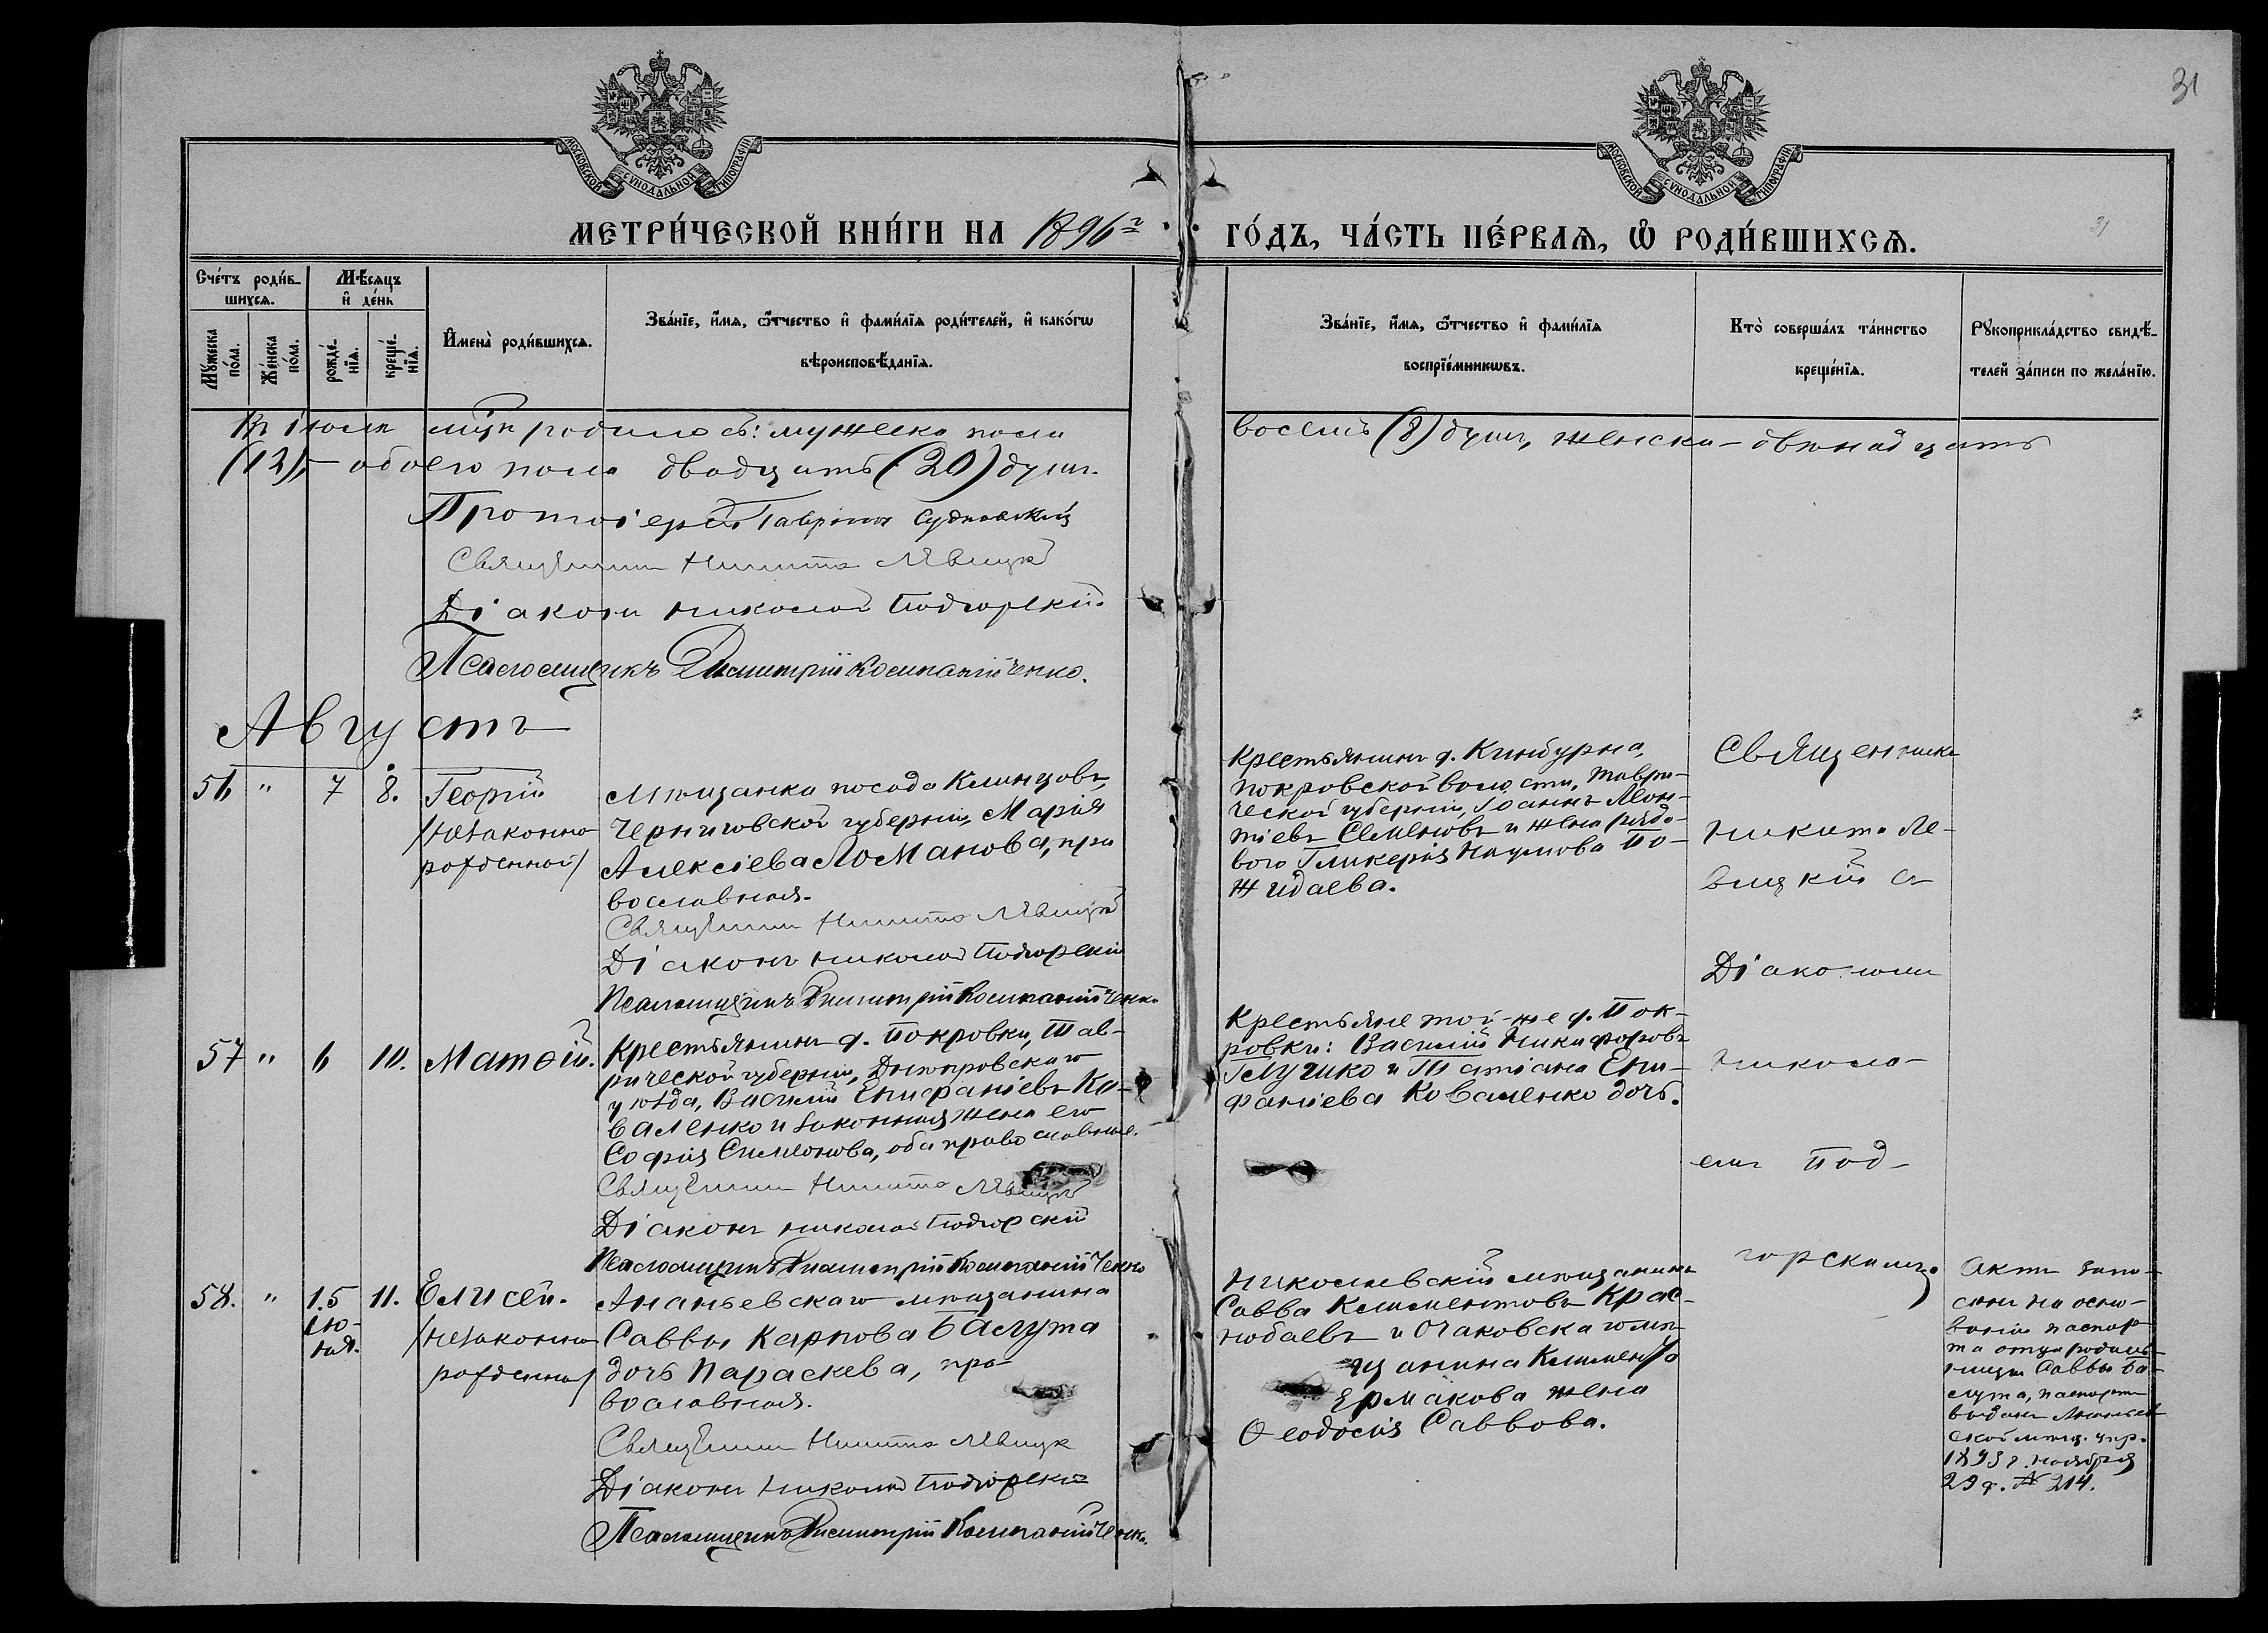 31
МОСКОВСКОЙ СѴНОДАЛЬНОЙ ТИПОГРАФІИ
МОСКОВСКОЙ СѴНОДАЛЬНОЙ ТИПОГРАФІИ
МЕТРИ́ЧЕСКОЙ КНИ́ГИ НА 1896 г
ГО́ДЪ, ЧА́СТЬ ПЕ́РВАѦ, Ѡ҆ РОДИ́ВШИХСѦ.
31
Сче́тъ роди́в-
шихсѧ.
Мѣ́сѧцъ
и҆ де́нь
Мꙋ́жеска
по́ла.
Же́нска
по́ла.
рожде́-
нїѧ.
креще́-
нїѧ.
И҆мена̀ роди́вшихсѧ.
Зва́нїе, и҆́мѧ, ѻ҆́тчество и҆ фами́лїѧ роди́телей, и҆ како́гѡ
вѣроисповѣ́данїѧ.
Зва́нїе, и҆́мѧ, ѻ҆́тчество и҆ фами́лїѧ
воспрїе́мникѡвъ.
Кто̀ соверша́лъ та́инство
креще́нїѧ.
Рꙋкоприкла́дство свидѣ́-
телей за́писи по жела́нїю.
Въ іюлѣ мцѣ родилось: мужеска пола
восемь (8) душъ, женска - двѣнадцать
(12), - обоего пола двадцать (20) душъ.
Протоіерей Гавріилъ Судковскій
Священникъ Никита Лѣвицкій
Діаконъ Николай Подгорскій
Псаломщикъ Димитрій Компанійченко.
Августъ
56 " 7 8. Георгій
/незаконно
рожденный/
Мѣщанка посада Клинцовъ,
Черниговской губерніи, Марія
Алексіева Ломанова, пра
вославная.
Священникъ Никита Лѣвицкій
Діаконъ Николай Подгорскій
Псаломщикъ Димитрій Компанійченко
Крестьянинъ д. Кинбурна,
Покровской волости, Таври-
ческой губерніи, Іоаннъ Леон-
тіевъ Семеновъ и жена рядо-
вого Гликерія Наумова По-
жидаева.
Священника
Никита Ле-
вицкій съ
Діакономъ
57 " 6 10. Матѳій.
Крестьянинъ д. Покровки, Тав-
рической губерніи, Днѣпровскаго
уѣзда, Василій Епифаніевъ Ко-
валенко и законная жена его
Софія Симеонова, оба православные.
Священникъ Никита Лѣвицкій
Діаконъ Николай Подгорскій
Псаломщикъ Димитрій Компанійченко
Крестьяне той-же д. Пок-
ровки: Василій Никифоровъ
Глушко и Татіана Епи-
фаніева Коваленко дочь.
Никола-
емъ Под-
горскимъ.
58. " 15 11. Елисей.
Ію-
ля.
/незаконно
рожденный/
Ананьевскаго мѣщанина
Саввы Карпова Балута
дочь Параскева, пра-
вославная.
Священникъ Никита Лѣвицкій
Діаконъ Николай Подгорскій
Псаломщикъ Димитрій Компанійченко.
Николаевскій мѣщанинъ
Савва Климентовъ Крас-
нобаевъ и Очаковскаго мѣ-
щанина Климента
Ермакова жена
Ѳеодосія Саввова.
Актъ запи-
санъ на осно-
ваніи паспор-
та отца родиль-
ницы Саввы Ба-
лута, паспортъ
выданъ Ананьев-
ской мѣщ. упр.
1895 г. ноября
29 д. № 214.